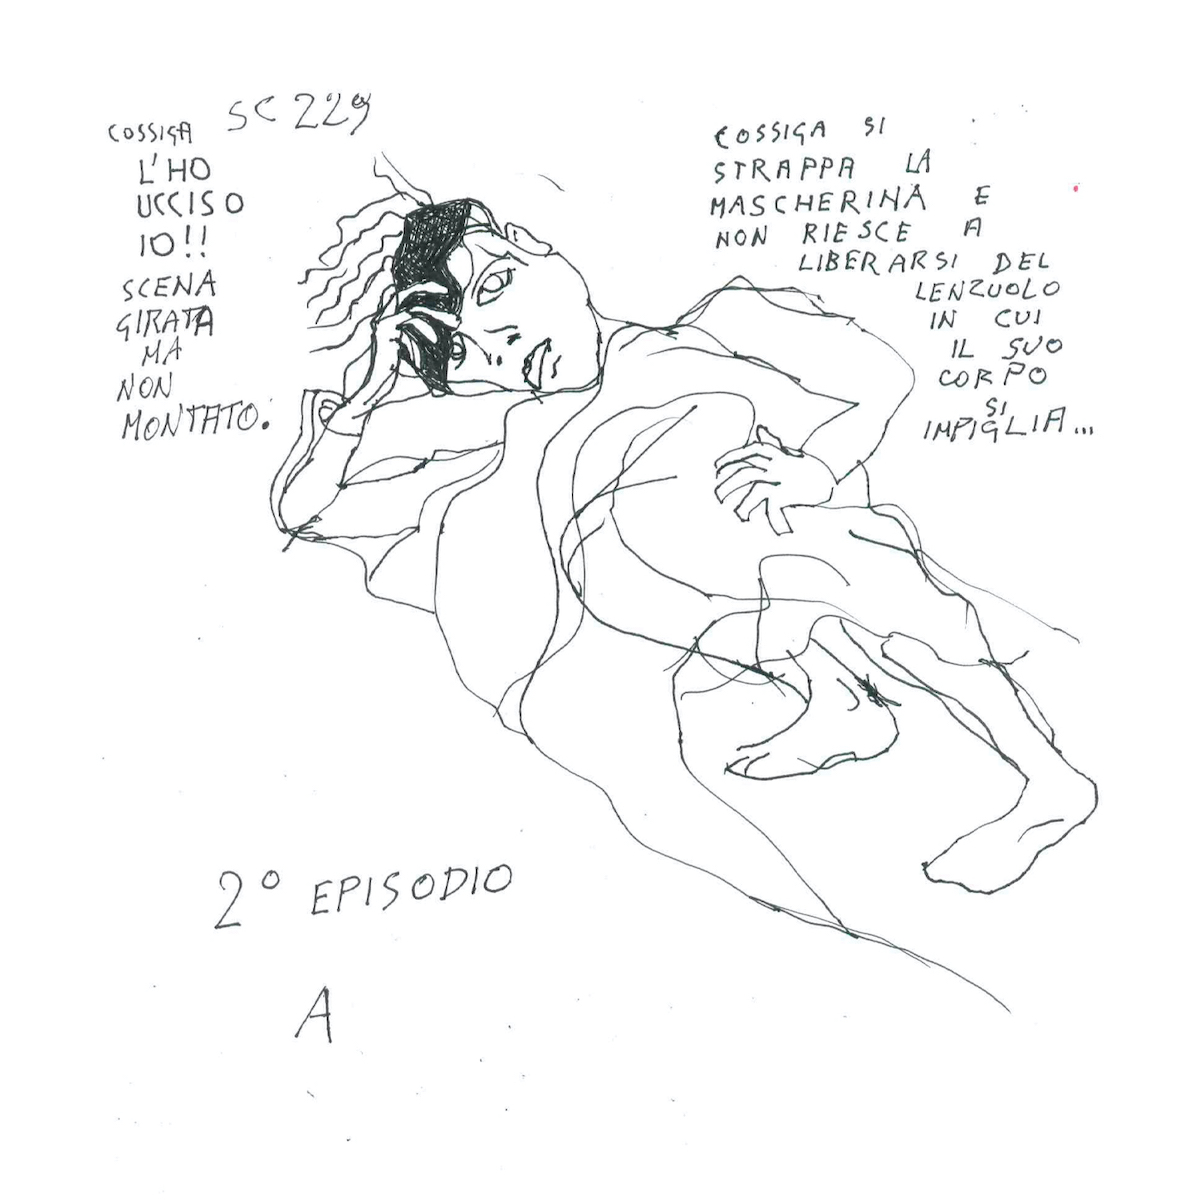 SC 229
COSSIGA
L'HO
UCCISO
IO!!
SCENA
GIRATA
MA
NON
MONTATO.
COSSIGA SI
STRAPPA LA
MASCHERINA E
NON RIESCE A
LIBERARSI DEL
LENZUOLO
IN CUI
IL SUO
CORPO
SI
IMPIGLIA...
2° EPISODIO
A